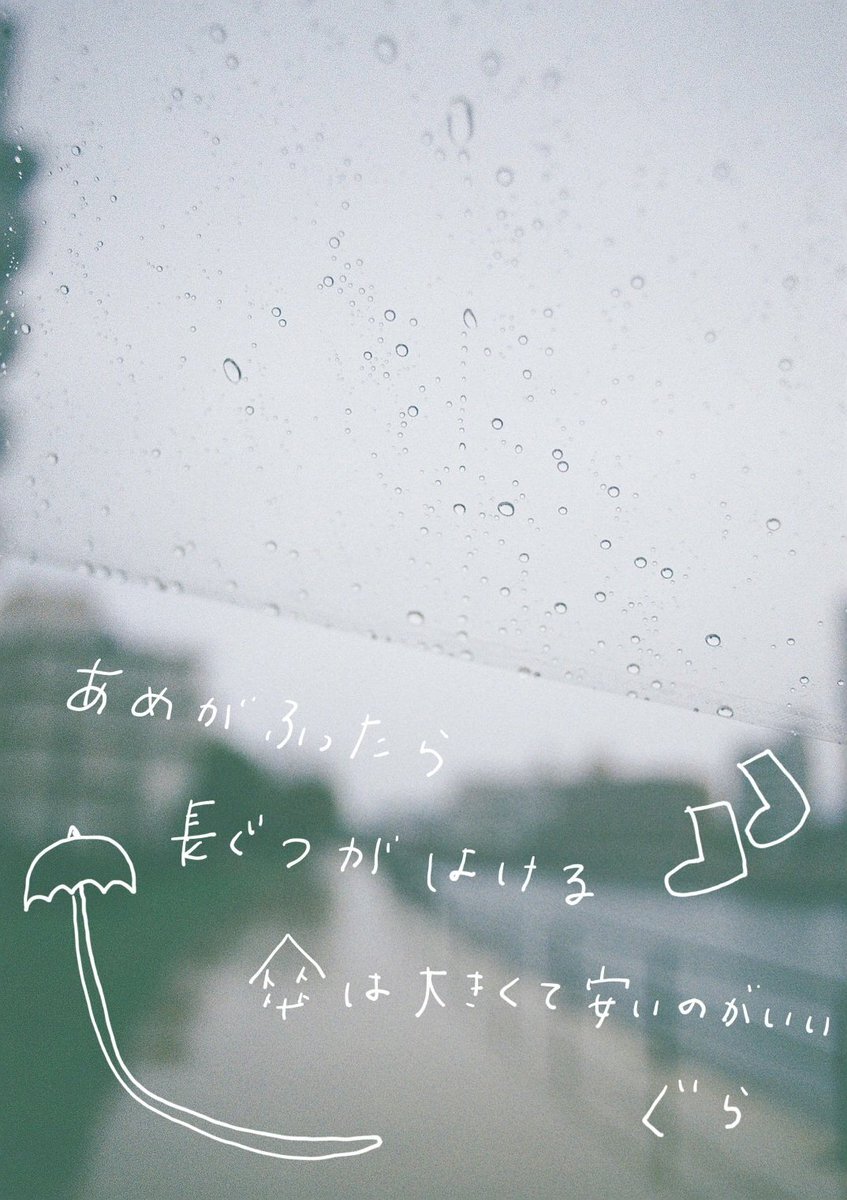 あめがふったら
長ぐつがはける
傘は大きくて安いのがいい
ぐら